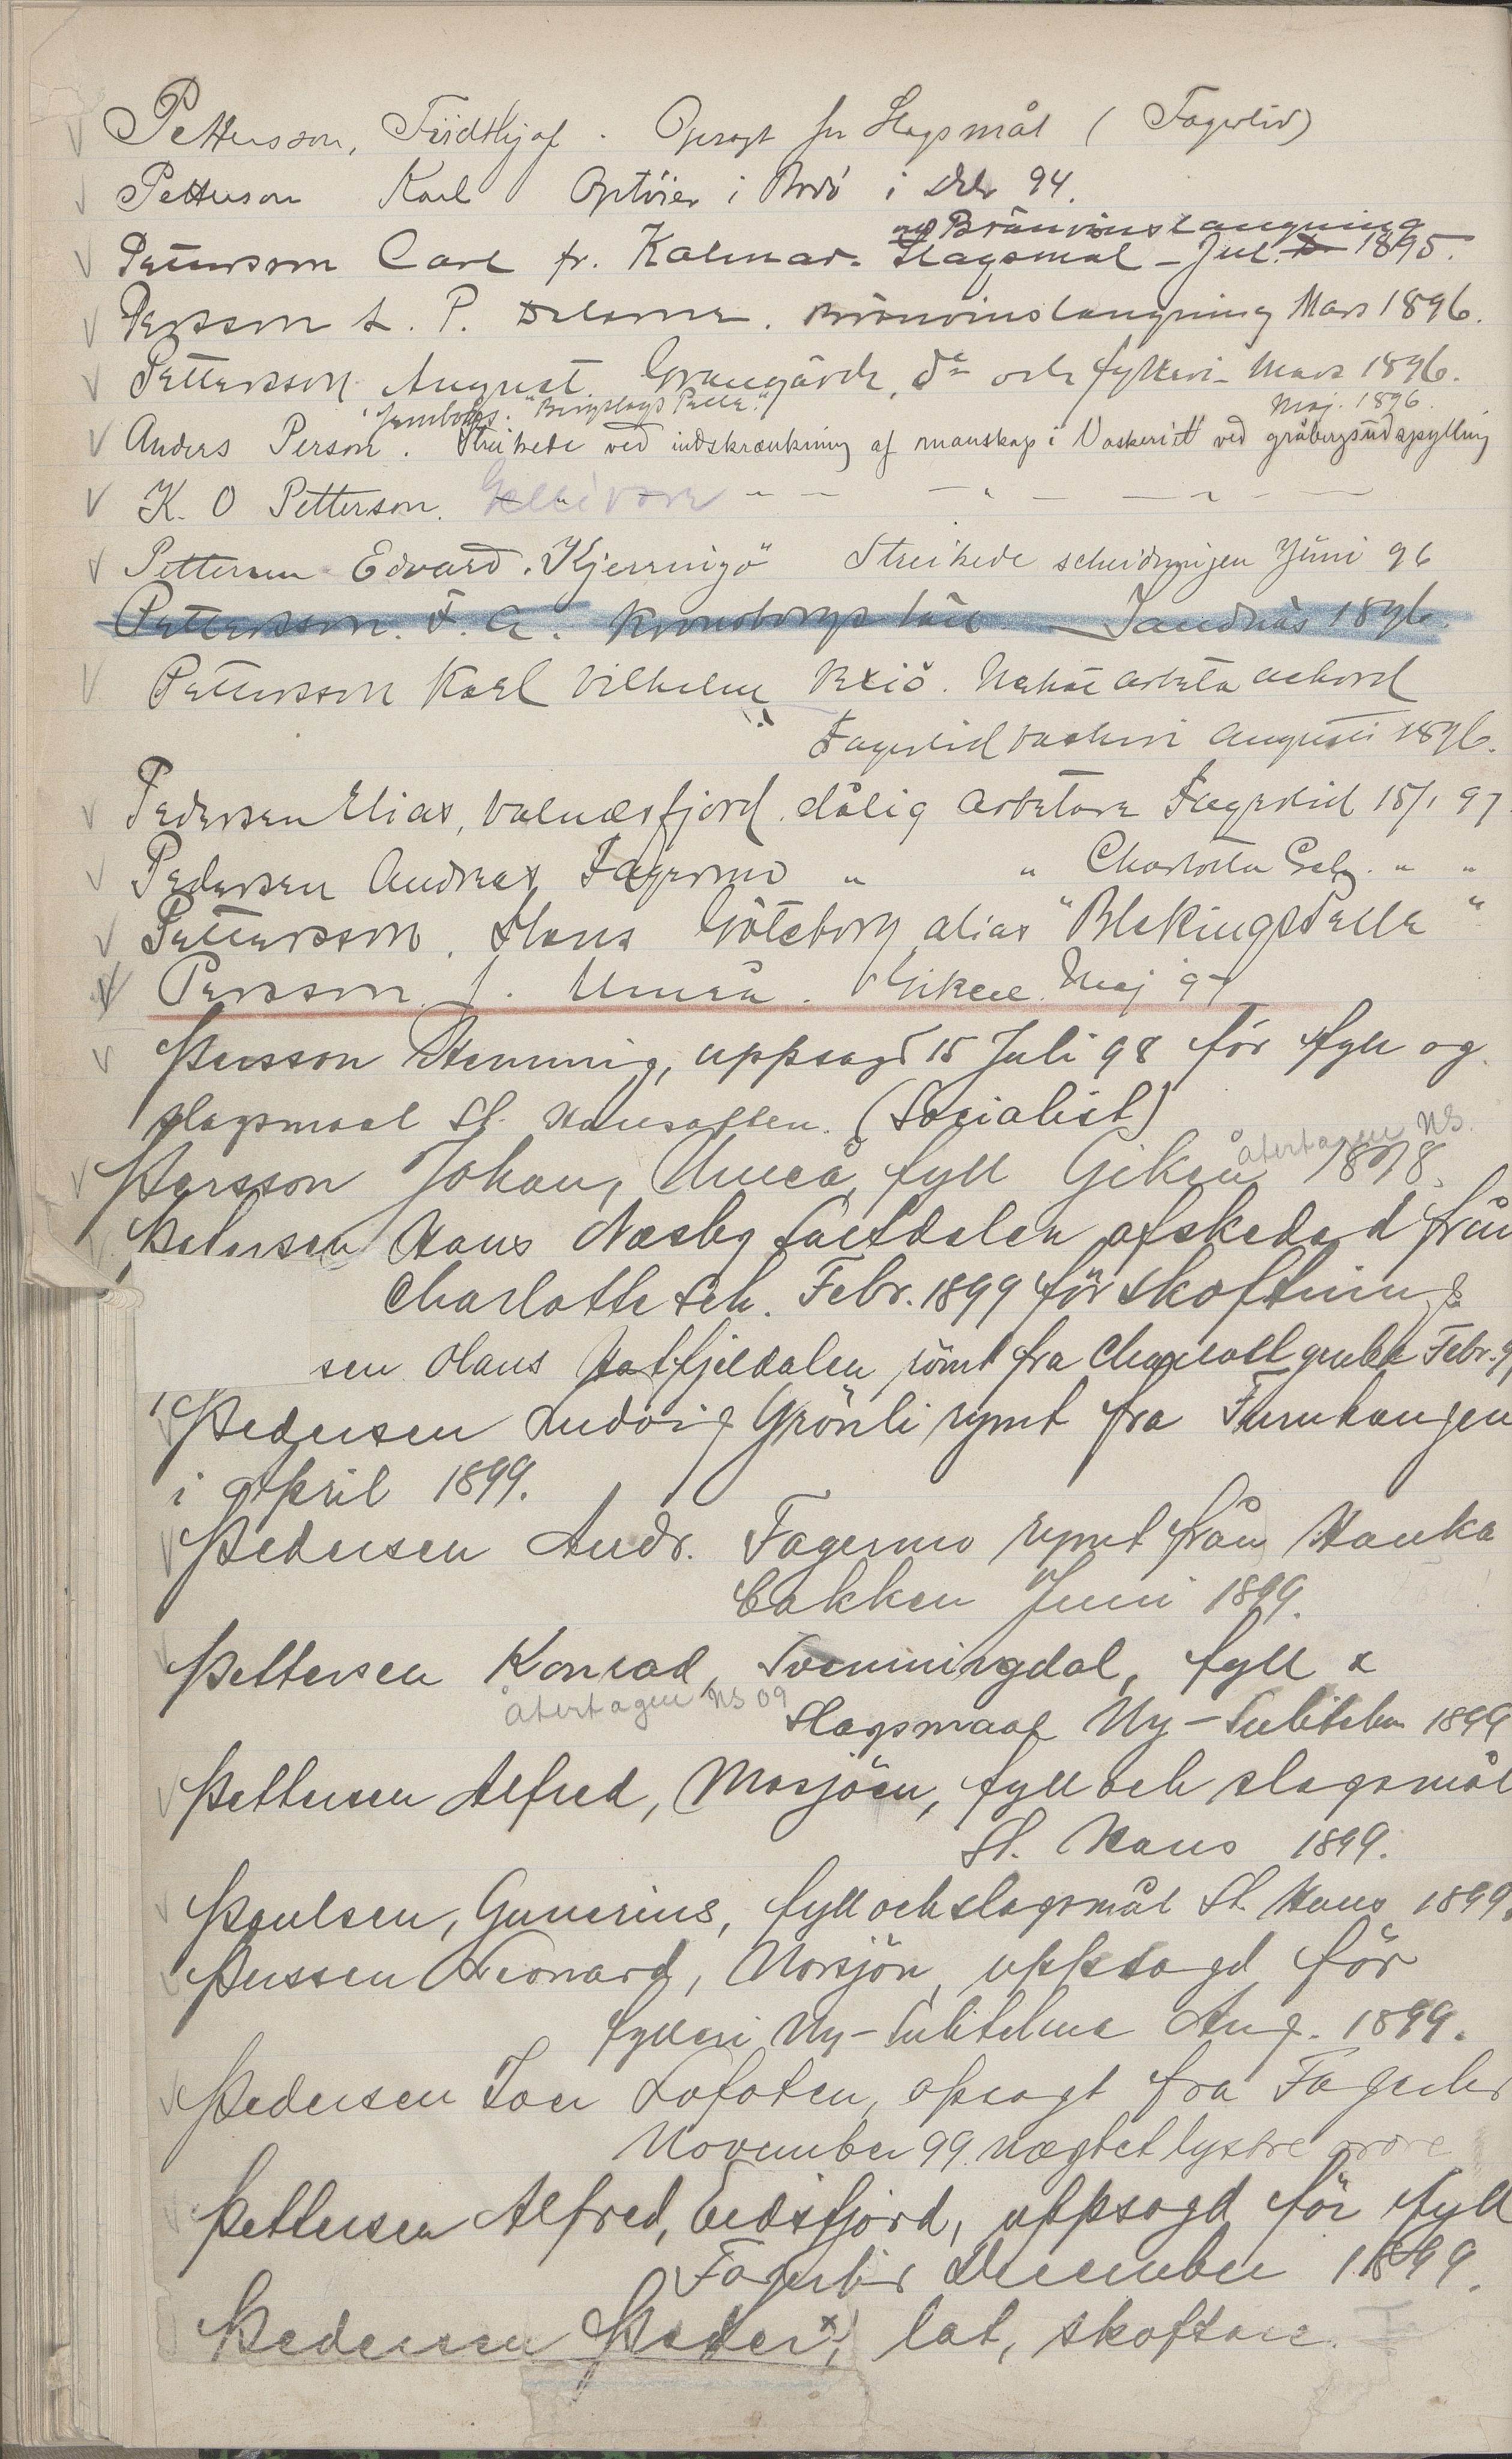 Pettersson, Fridthjof. Opsagt for Slagsmål (Fagerlid)
Petterson Karl Optöier i Bodö i Dcbr 94.
og Bränvinslangning
Pettersson Carl fr. Kalmar. Slagsmål - Jul. 1895.
Persson L. P. Dalarne. Bränvinslangning Mars 1896.
Pettersson August. Grangärde, do och fylleri - Mars 1896.
"Bergslags Pelle." Maj. 1896.
Anders Person. Streikede ved indskrænkning af manskap i Vaskeriet ved gråbergsudspylling
K. O Petterson. Gellivare
Pettersen Edvard. Kjerringö Streikede scheidningen Juni 96
Pettersson. F. A. Kronobergs län - Sandnäs 1896.
Pettersson Karl Vilhelm Vexiö. Nekat arbeta ackord
Fagerlid vaskeri Augusti 1896.
Pedersen Elias, Valnesfjord. dålig arbetare Fagerlid 15/1 97
Pedersen Andreas Fagermo " " Charlotta Gel. " "
Pettersson. Hans Göteborg alias "Blekingspelle"
Persson J. Umeå. Giken. Maj 97
Persson Hemming, uppsagd 15 Juli 98 för fyll og
slagsmaal St. Hansaften. (Socialist)
återtagen NS.
Persson Johan, Umeå, fyll Giken 1898.
Pedersen Hans Næsby Saltdalen afskedad från
Charlotte Sch. Febr. 1899 för skoftning
sen Olaus Hatfjeldalen römt fra Charlott grube Febr. 99
Pedersen Ludvig Grönli rymt fra Furuhaugen
i April 1899.
Pedersen Andr. Fagermo rymt från Hanka
bakken Juni 1899.
Pettersen Konrad, Svenningdal, fyll &
återtagen NS 09
Slagsmaal Ny-Sulitelma 1899
Pettersen Alfred, Mosjöen, fyll och slagsmål
St. Hans 1899.
Paulsen, Gunerius, fyll och slagsmål St. Hans 1899.
Persson Leonard, Norsjön, uppsagd för
fylleri Ny-Sulitelma Aug. 1899.
Pedersen Toer Lofoten, opsagt fra Fagerli
November 99. nægtet lystre ordre
Pettersen Alfred, Eidsfjord, uppsagd för fyll
Fagerli December 1899.
Pedersen Peder x, lat, skoftare.